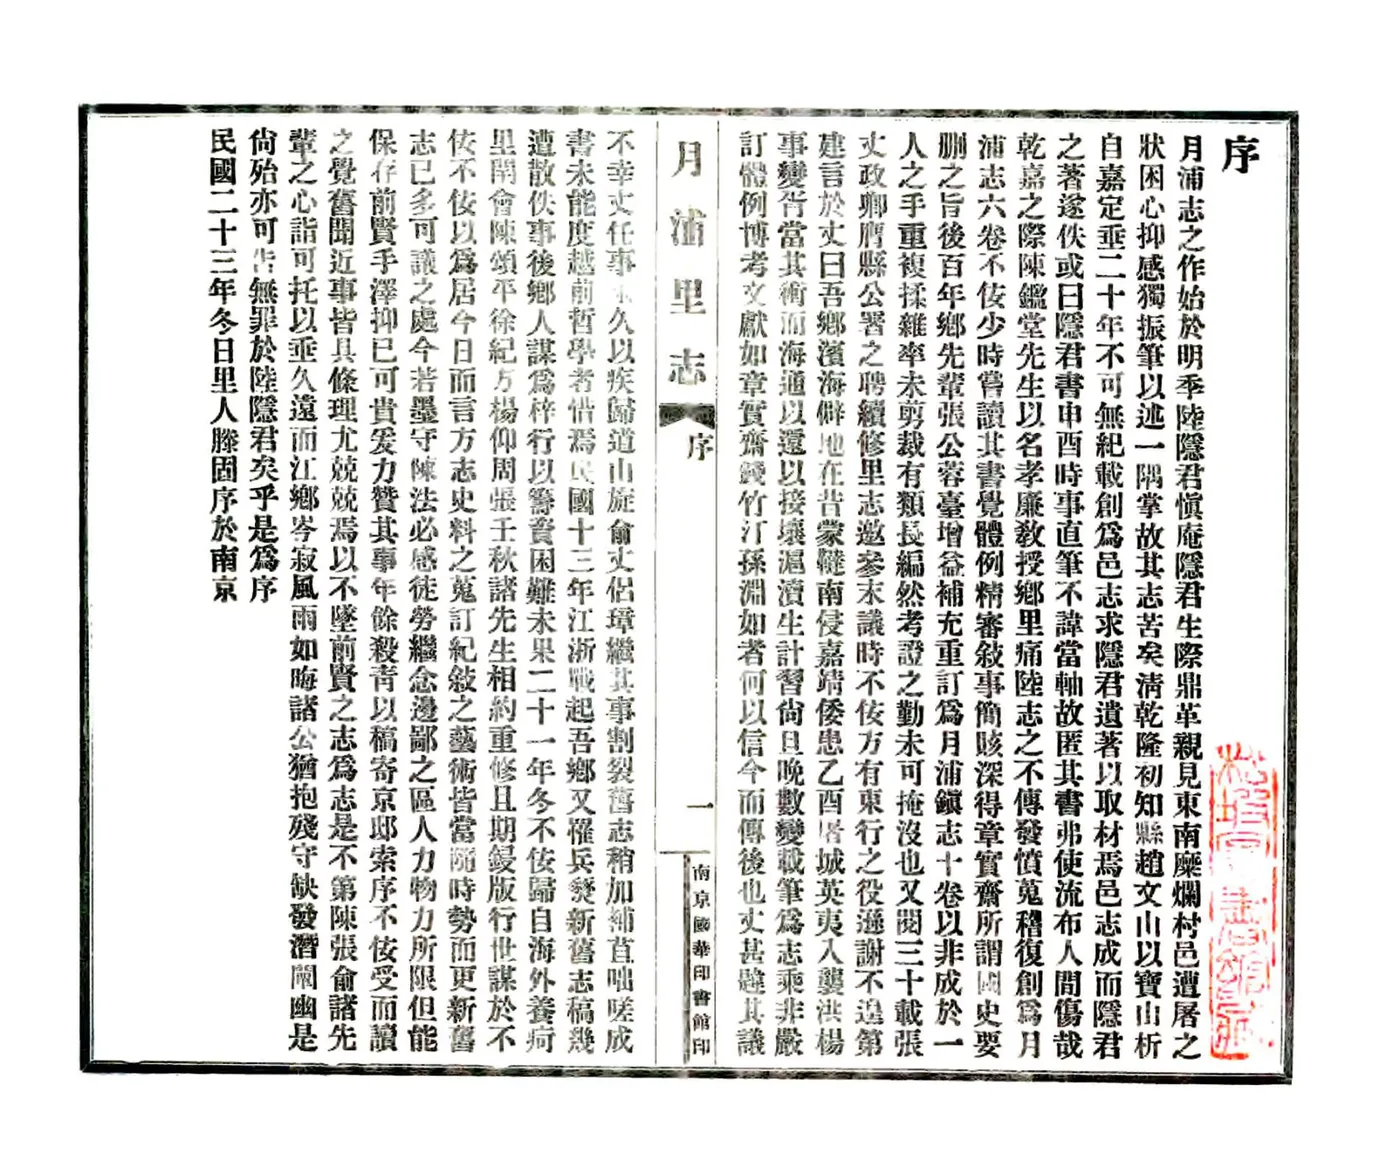 序
月浦志之作始於明季陸隱君愼庵隱君生際鼎革親見東南糜爛村邑遭屠之
狀困心抑感獨振筆以述一隅掌故其志苦矣淸乾隆初知縣趙文山以寶山析
自嘉定垂二十年不可無紀載創爲邑志求隱君遺著以取材焉邑志成而隱君
之著遂佚或曰隱君書申酉時事直筆不諱當軸故匿其書弗使流布人間傷哉
乾嘉之際陳鑑堂先生以名孝廉敎授鄉里痛陸志之不傳發憤蒐稽復創爲月
浦志六卷不佞少時嘗讀其書覺體例精審敍事簡賅深得章實齋所謂國史要
刪之旨後百年鄉先輩張公蓉臺增益補充重訂爲月浦鎭志十卷以非成於一
人之手重複揉雜率未剪裁有類長編然考證之勤未可掩沒也又閱三十載張
丈政卿膺縣公署之聘續修里志邀參末議時不佞方有東行之役遜謝不遑第
建言於丈曰吾鄉濱海僻地在昔蒙韃南侵嘉靖倭患乙酉屠城英夷入襲洪楊
事變胥當其衝而海通以還以接壤滬瀆生計習尙旦晚數變載筆爲志乘非嚴
訂體例博考文獻如章實齋錢竹汀孫淵如者何以信今而傳後也丈甚韙其議
月浦里志
序
一
南京國華印書館印
不幸丈任事未久以疾歸道山旋俞丈侶璋繼其事割裂舊志稍加補苴咄嗟成
書未能度越前哲學者惜焉民國十三年江浙戰起吾鄉又罹兵燹新舊志稿幾
遭散佚事後鄉人謀爲梓行以籌資困難未果二十一年冬不佞歸自海外養疴
里閈會陳頌平徐紀方楊仰周張壬秋諸先生相約重修且期鋟版行世謀於不
佞不佞以爲居今日而言方志史料之蒐訂紀敍之藝術皆當隨時勢而更新舊
志已多可議之處今若墨守陳法必感徒勞繼念邊鄙之區人力物力所限但能
保存前賢手澤抑已可貴爰力贊其事年餘殺靑以稿寄京邸索序不佞受而讀
之覺舊聞近事皆具條理尤兢兢焉以不墜前賢之志爲志是不第陳張俞諸先
輩之心詣可托以垂久遠而江鄉岑寂風雨如晦諸公猶抱殘守缺發潛闡幽是
尙殆亦可告無罪於陸隱君矣乎是爲序
民國二十三年冬日里人滕固序於南京